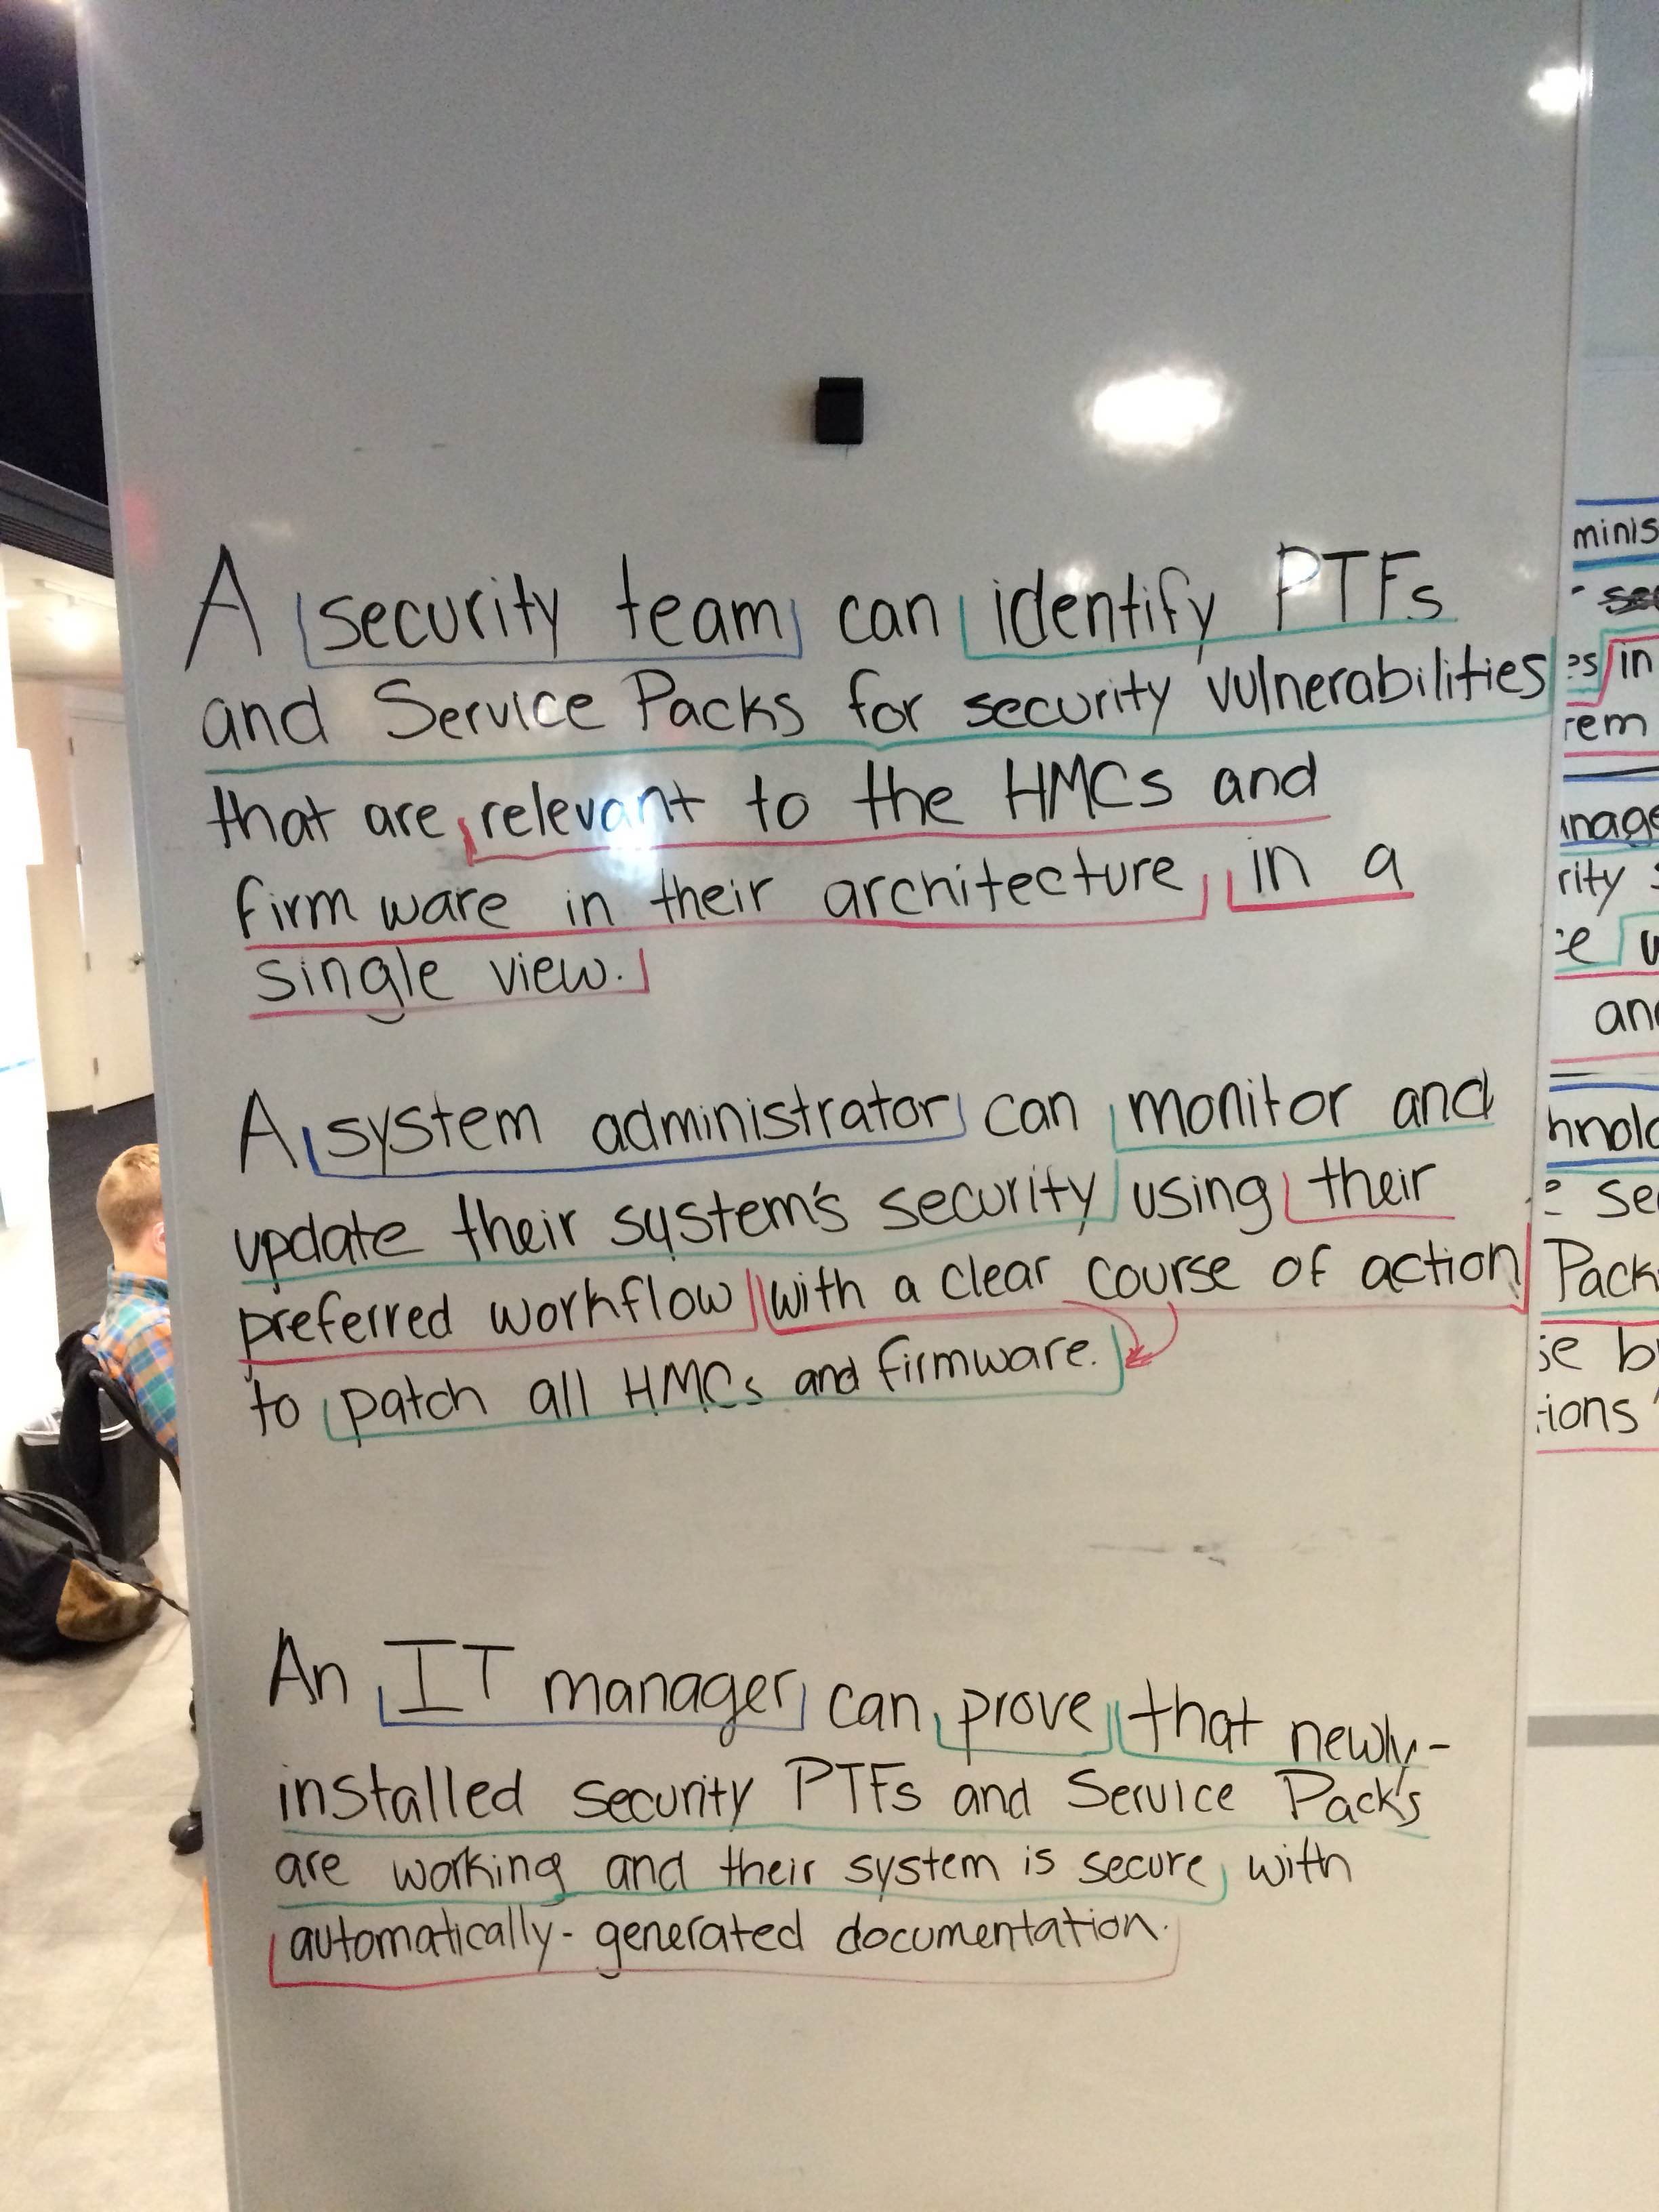 A security team can identify PTFs
and Service Packs for security vulnerabilities
that are relevant to the HMCs and
firmware in their architecture in a
single view.
A system administrator can monitor and
update their system's security using their
preferred workflow with a clear course of action
to patch all HMCs and firmware.
An IT manager can prove that newly-
installed security PTFs and Service Packs
are working and their system is secure with
automatically-generated documentation.
minis
in
rem
nage
rity
an
hnolo
se
Pack
se b
ions